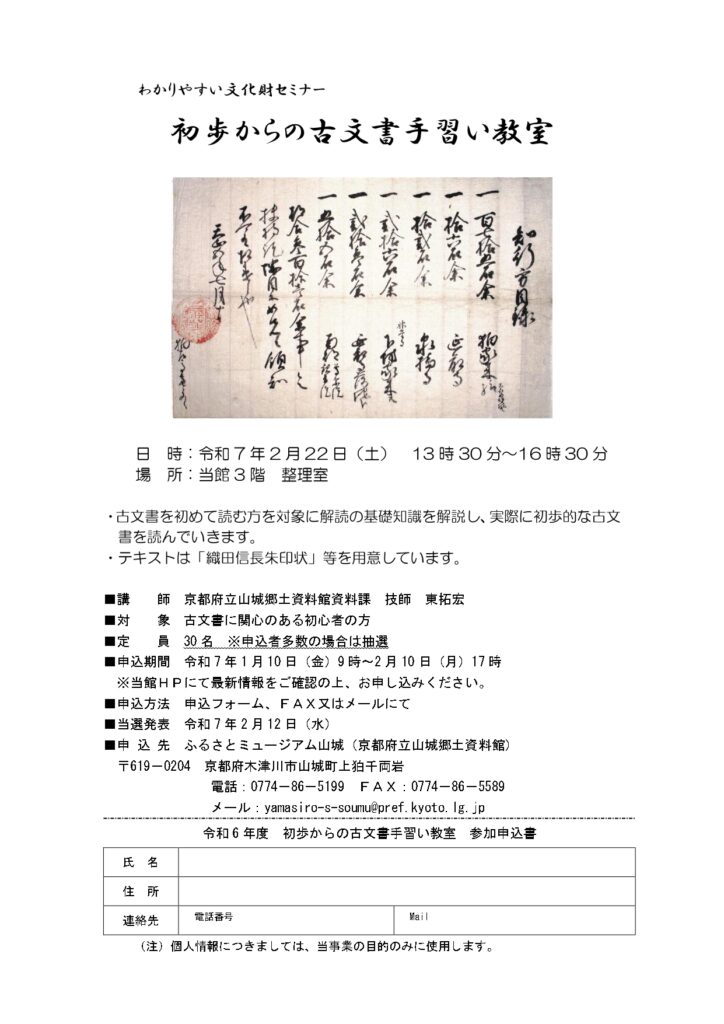 わかりやすい文化財セミナー
初歩からの古文書手習い教室
知行方目録
一 百七拾五石余
一 拾六石余
一 拾弐石余
一 弐拾六石余
一 弐拾壱石余
一 五拾四石余
日 時：令和７年２月22日（土） 13時30分～16時30分
場 所：当館３階 整理室
・古文書を初めて読む方を対象に解読の基礎知識を解説し、実際に初歩的な古文
書を読んでいきます。
・テキストは「織田信長朱印状」等を用意しています。
■講 師 京都府立山城郷土資料館資料課 技師 東拓宏
■対 象 古文書に関心のある初心者の方
■定 員 30名 ※申込者多数の場合は抽選
■申込期間 令和７年１月10日（金）９時～２月10日（月）17時
※当館ＨＰにて最新情報をご確認の上、お申し込みください。
■申込方法 申込フォーム、ＦＡＸ又はメールにて
■当選発表 令和７年２月12日（水）
■申 込 先 ふるさとミュージアム山城（京都府立山城郷土資料館）
〒619－0204 京都府木津川市山城町上狛千両岩
電話：0774－86－5199 ＦＡＸ：0774－86－5589
メール：yamasiro-s-soumu@pref.kyoto.lg.jp
令和６年度 初歩からの古文書手習い教室 参加申込書
氏 名
住 所
連絡先 電話番号 Mail
（注）個人情報につきましては、当事業の目的のみに使用します。